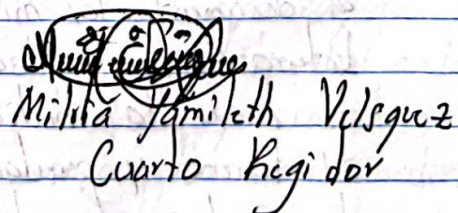 Milvia Yamileth Velsquez
Cuarto Regidor